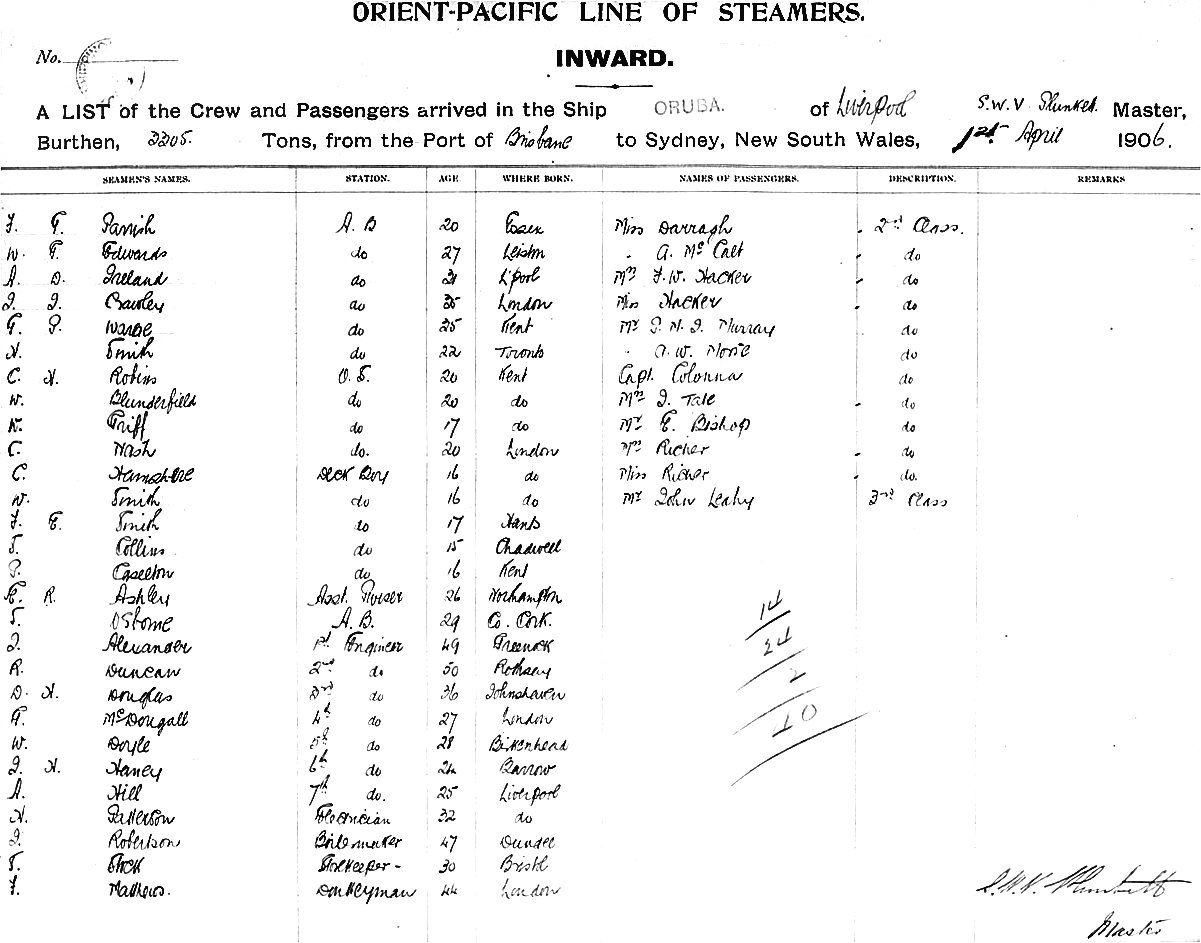 ORIENT-PACIFIC LINE OF STEAMERS.
No.
INWARD.
A LIST of the Crew and Passengers arrived in the Ship ORUBA. of Liverpool S.W.V Plunket Master,
Burthen, Tons, from the Port of Brisbane to Sydney, New South Wales, 1st April 1906.
SEAMEN'S NAMES. STATION. AGE WHERE BORN. NAMES OF PASSENGERS. DESCRIPTION. REMARKS
Parrish A. B 20 Essex Miss Darragh 2nd Class.
W. Edwards do 27 Leiston A. Mc Calt do
A. D. Ireland do 31 L'pool Mrs F. W. Hacker do
J. J. Bawley do 35 London Miss Hacker do
do 25 Kent Mr P. M. J. Murray do
H. Smith do 22 Toronto A. W. do
C. H. Robins O. S. 20 Kent Capt. Colonna do
W. Blunderfield do 20 do Mrs J. Tate do
W. do 17 do Mr E. Bishop do
C. Nash do. 20 London Mrs Richer do
C. Hampshire Deck Boy 16 do Miss Richer do.
W. Smith do 16 do Mr John Leahy 3rd Class
F. E. Smith do 17 Hants
Collins do 15 Chadwell
P. Caselton do 16 Kent
E. R. Ashley Asst. Purser 26 Northampton
Osborne A. B. 29 Co. Cork.
J. Alexander 1st Engineer 49 Greenock
R. Duncan 2nd do 50 Rothsay
D. H. Douglas 3rd do 36 Johnshaven
McDougall 4th do 27 London
W. Doyle 5th do 28 Birkenhead
J. H. Haney 6th do 24 Barrow
A. Hill 7th do. 25 Liverpool
H. Patterson Electrician 32 do
J. Robertson Boilermaker 47 Dundee
Storekeeper - 30 Bristl
F. Mathews. Donkeyman 44 London
14
24
2
40
S.W.V. Plunkett
Master